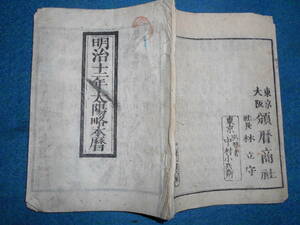 明治十二年太陽略本暦
東京
大阪
頒暦商社
社長 林立守
東京
中村小兵衛